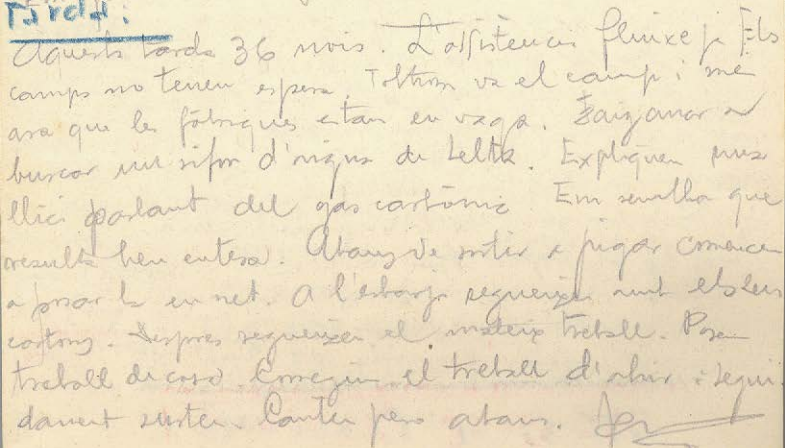 Tarda:
Aquesta tarda 36 nois. L'assistencia fluixeja. Els
camps no tenen espera. Tothom va el camp i més
ara que les fàbriques estan en vaga.
buscar un sifon d'aigua de Seltz. Expliquem una
lliçó parlant del gas carbònic. Em sembla que
resulta ben entesa. Abans de sortir a jugar comencen
a posar la en net. A l'estorg segueixen amb els seus
cartons. Despres segueixen el mateix treball. Posem
treball de casa. Corregim el treball d'ahir i segui-
dament surten. Canten pero abans.